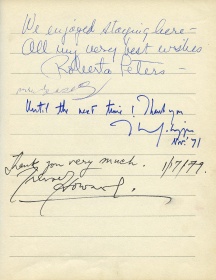 We enjoyed staying here -
All my very best wishes
Roberta Peters -
Until the next time! Thank you
Nov. '71
Thank you very much. 1/17/79.
Trevor Howard.